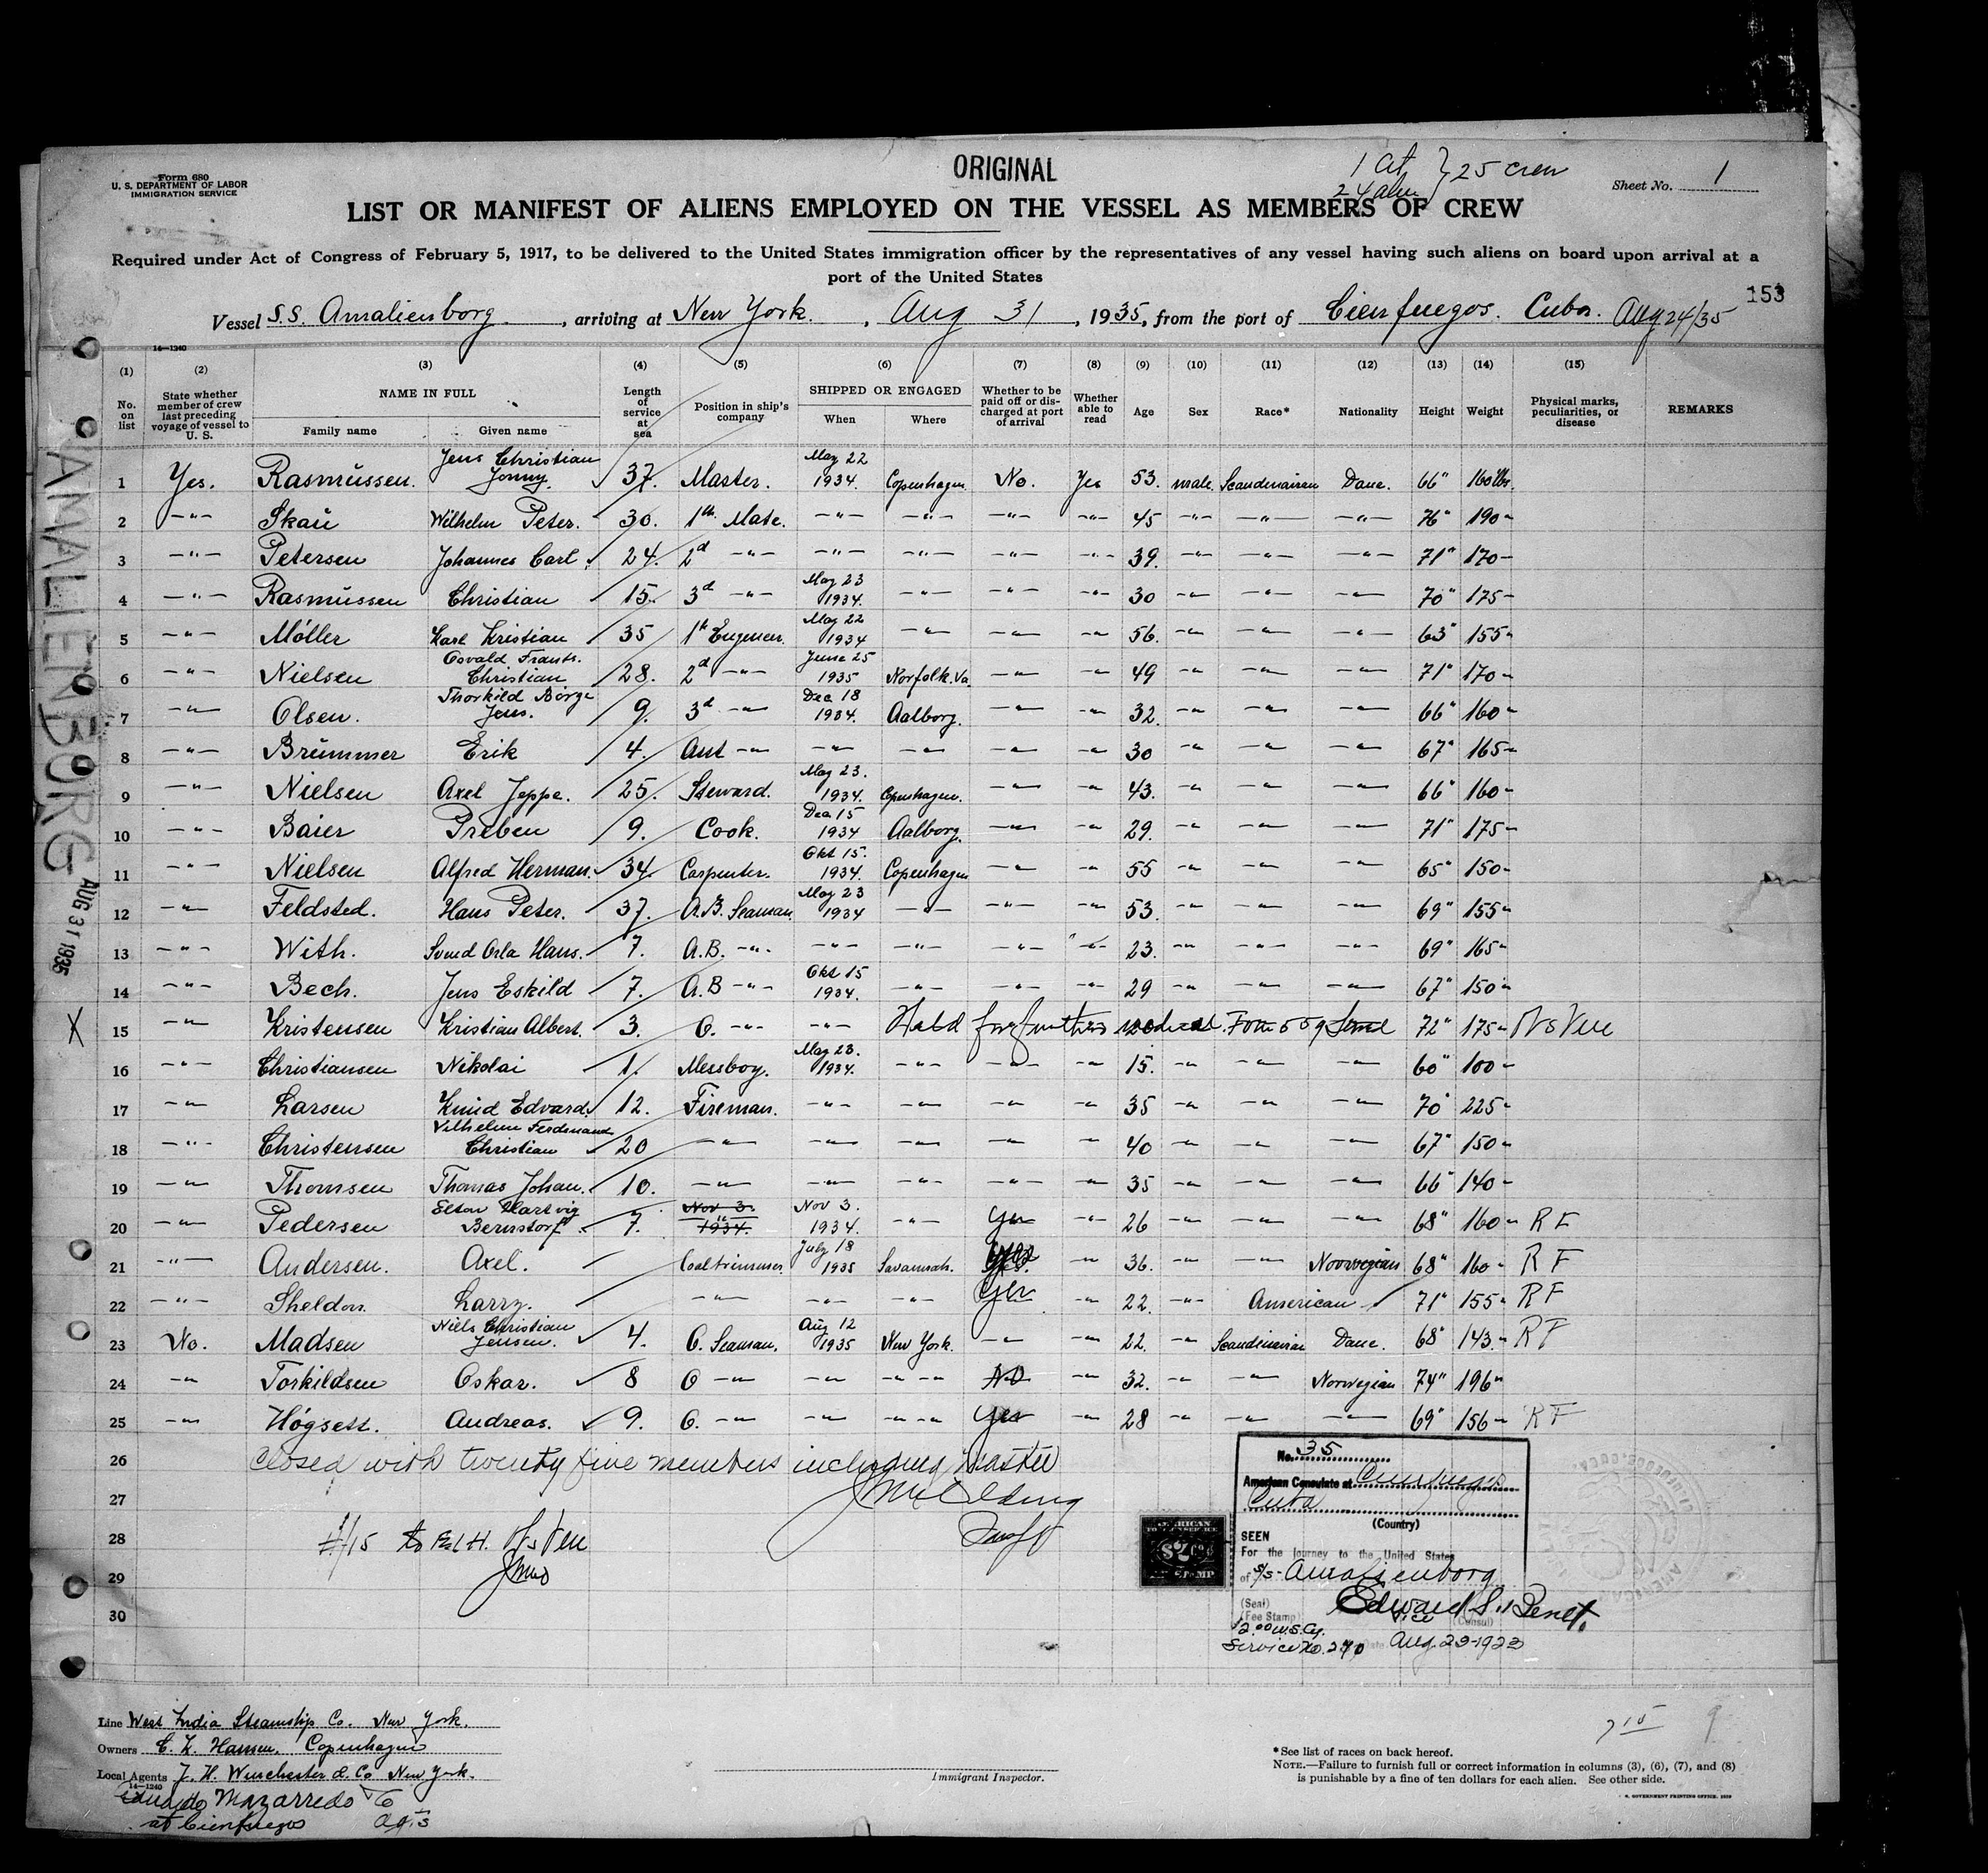 Form 680
U. S. DEPARTMENT OF LABOR
IMMIGRATION SERVICE
ORIGINAL
1 Cit
24 alien } 25 crew
Sheet No. 1
LIST OR MANIFEST OF ALIENS EMPLOYED ON THE VESSEL AS MEMBERS OF CREW
Required under Act of Congress of February 5, 1917, to be delivered to the United States immigration officer by the representatives of any vessel having such aliens on board upon arrival at a
port of the United States
153
Vessel S.S. Amalienborg, arriving at New York, Aug 31, 1935, from the port of Cienfuegos. Cuba. Aug 24/35
14—1240
(1) (2) (3) (4) (5) (6) (7) (8) (9) (10) (11) (12) (13) (14) (15)
No. on list State whether member of crew last preceding voyage of vessel to U. S. NAME IN FULL Family name Given name Length of service at sea Position in ship's company SHIPPED OR ENGAGED When Where Whether to be paid off or discharged at port of arrival Whether able to read Age Sex Race* Nationality Height Weight Physical marks, peculiarities, or disease REMARKS
1 Yes. Rasmussen. Jens Christian Jonny. 37. Master. May 22 1934. Copenhagen No. Yes 53. male. Scandinavian Dane. 66" 160 lbs.
2 -"- Skau Wilhelm Peter. 30. 1th Mate. -"- -"- -"- -"- 45 -"- -"- -"- 76" 190 "
3 -"- Petersen Johannes Carl. 24. 2d -"- -"- -"- -"- -"- 39. -"- -"- -"- 71" 170 "
4 -"- Rasmussen Christian 15. 3d -"- May 23 1934. -"- -"- -"- 30 -"- -"- -"- 70" 175 "
5 -"- Möller Karl Kristian 35 1th Engineer. May 22 1934 -"- -"- -"- 56. -"- -"- -"- 63" 155 "
6 -"- Nielsen Osvald Frants. Christian 28. 2d -"- June 25 1935 Norfolk. Va. -"- -"- 49 -"- -"- -"- 71" 170 "
7 -"- Olsen. Thorkild Börge Jens. 9. 3d -"- Dec 18 1934. Aalborg. -"- -"- 32. -"- -"- -"- 66" 160 "
8 -"- Brümmer Erik 4. Asst -"- -"- -"- -"- -"- 30 -"- -"- -"- 67" 165 "
9 -"- Nielsen Axel Jeppe. 25. Steward. May 23. 1934. Copenhagen. -"- -"- 43. -"- -"- -"- 66" 160 "
10 -"- Baier Preben 9. Cook. Dec 15 1934 Aalborg. -"- -"- 29. -"- -"- -"- 71" 175 "
11 -"- Nielsen Alfred Herman. 34. Carpenter. Okt 15. 1934. Copenhagen -"- -"- 55 -"- -"- -"- 65" 150 "
12 -"- Feldsted. Hans Peter. 37. A.B. Seaman. May 23 1934 -"- -"- -"- 53. -"- -"- -"- 69" 155 "
13 -"- With. Svend Orla Hans. 7. A.B. -"- -"- -"- -"- -"- 23. -"- -"- -"- 69" 165 "
14 -"- Bech. Jens Eskild 7. A.B -"- Okt 15 1934. -"- -"- -"- 29 -"- -"- -"- 67" 150 "
X 15 -"- Kristensen Kristian Albert. 3. O. -"- -"- Held for further medical. Form 559 Served 72" 175 " Vs Ven
16 -"- Christiansen Nikolai 1. Messboy. May 23. 1934. -"- -"- -"- 15. -"- -"- -"- 60" 100 "
17 -"- Larsen Knud Edvard. 12. Fireman. -"- -"- -"- -"- 35 -"- -"- -"- 70" 225 "
18 -"- Christensen Vilhelm Ferdinand Christian 20 -"- -"- -"- -"- -"- 40 -"- -"- -"- 67" 150 "
19 -"- Thomsen Thomas Johan. 10. -"- -"- -"- -"- -"- 35 -"- -"- -"- 66" 140 "
20 -"- Pedersen Hartvig Bernstorf 7. Nov 3. 1934. Nov 3. 1934. -"- Yes -"- 26 -"- -"- -"- 68" 160 " R F
21 -"- Andersen. Axel. Coaltrimmer. July 18 1935 Savannah. Yes. -"- 36. -"- -"- Norwegian 68" 160 " R F
22 -"- Sheldon. Larry. -"- -"- -"- Yes -"- 22. -"- American 71" 155 " R F
23 No. Madsen Niels Christian Jensen. 4. O. Seaman. Aug 12 1935 New York. -"- -"- 22. -"- Scandinavian Dane. 68" 143. " R F
24 -"- Torkildsen Oskar. 8 O -"- -"- -"- -"- No -"- 32. -"- -"- Norwegian 74" 196 "
25 -"- Högsett. Andreas. 9. O. -"- -"- -"- -"- Yes -"- 28 -"- -"- -"- 69" 156 " R F
26 Closed with twenty five members including Master
27
28 #15 to
29
30
AMALIENBORG
AUG 31 1935
No. 35
American Consulate at Cienfuegos
Cuba
(Country)
SEEN
For the journey to the United States
of S/S Amalienborg
(Seal)
(Fee Stamp)
Vice (Consul)
Edward S. Benet.
Service No. 270 Date Aug. 23-1923
Line West India Steamship Co. New York.
Owners C. K. Hansen, Copenhagen
Local Agents J. H. Winchester & Co New York.
14—1240
Eduardo Mazarredo
at Cienfuegos
Immigrant Inspector.
* See list of races on back hereof.
NOTE.—Failure to furnish full or correct information in columns (3), (6), (7), and (8)
is punishable by a fine of ten dollars for each alien. See other side.